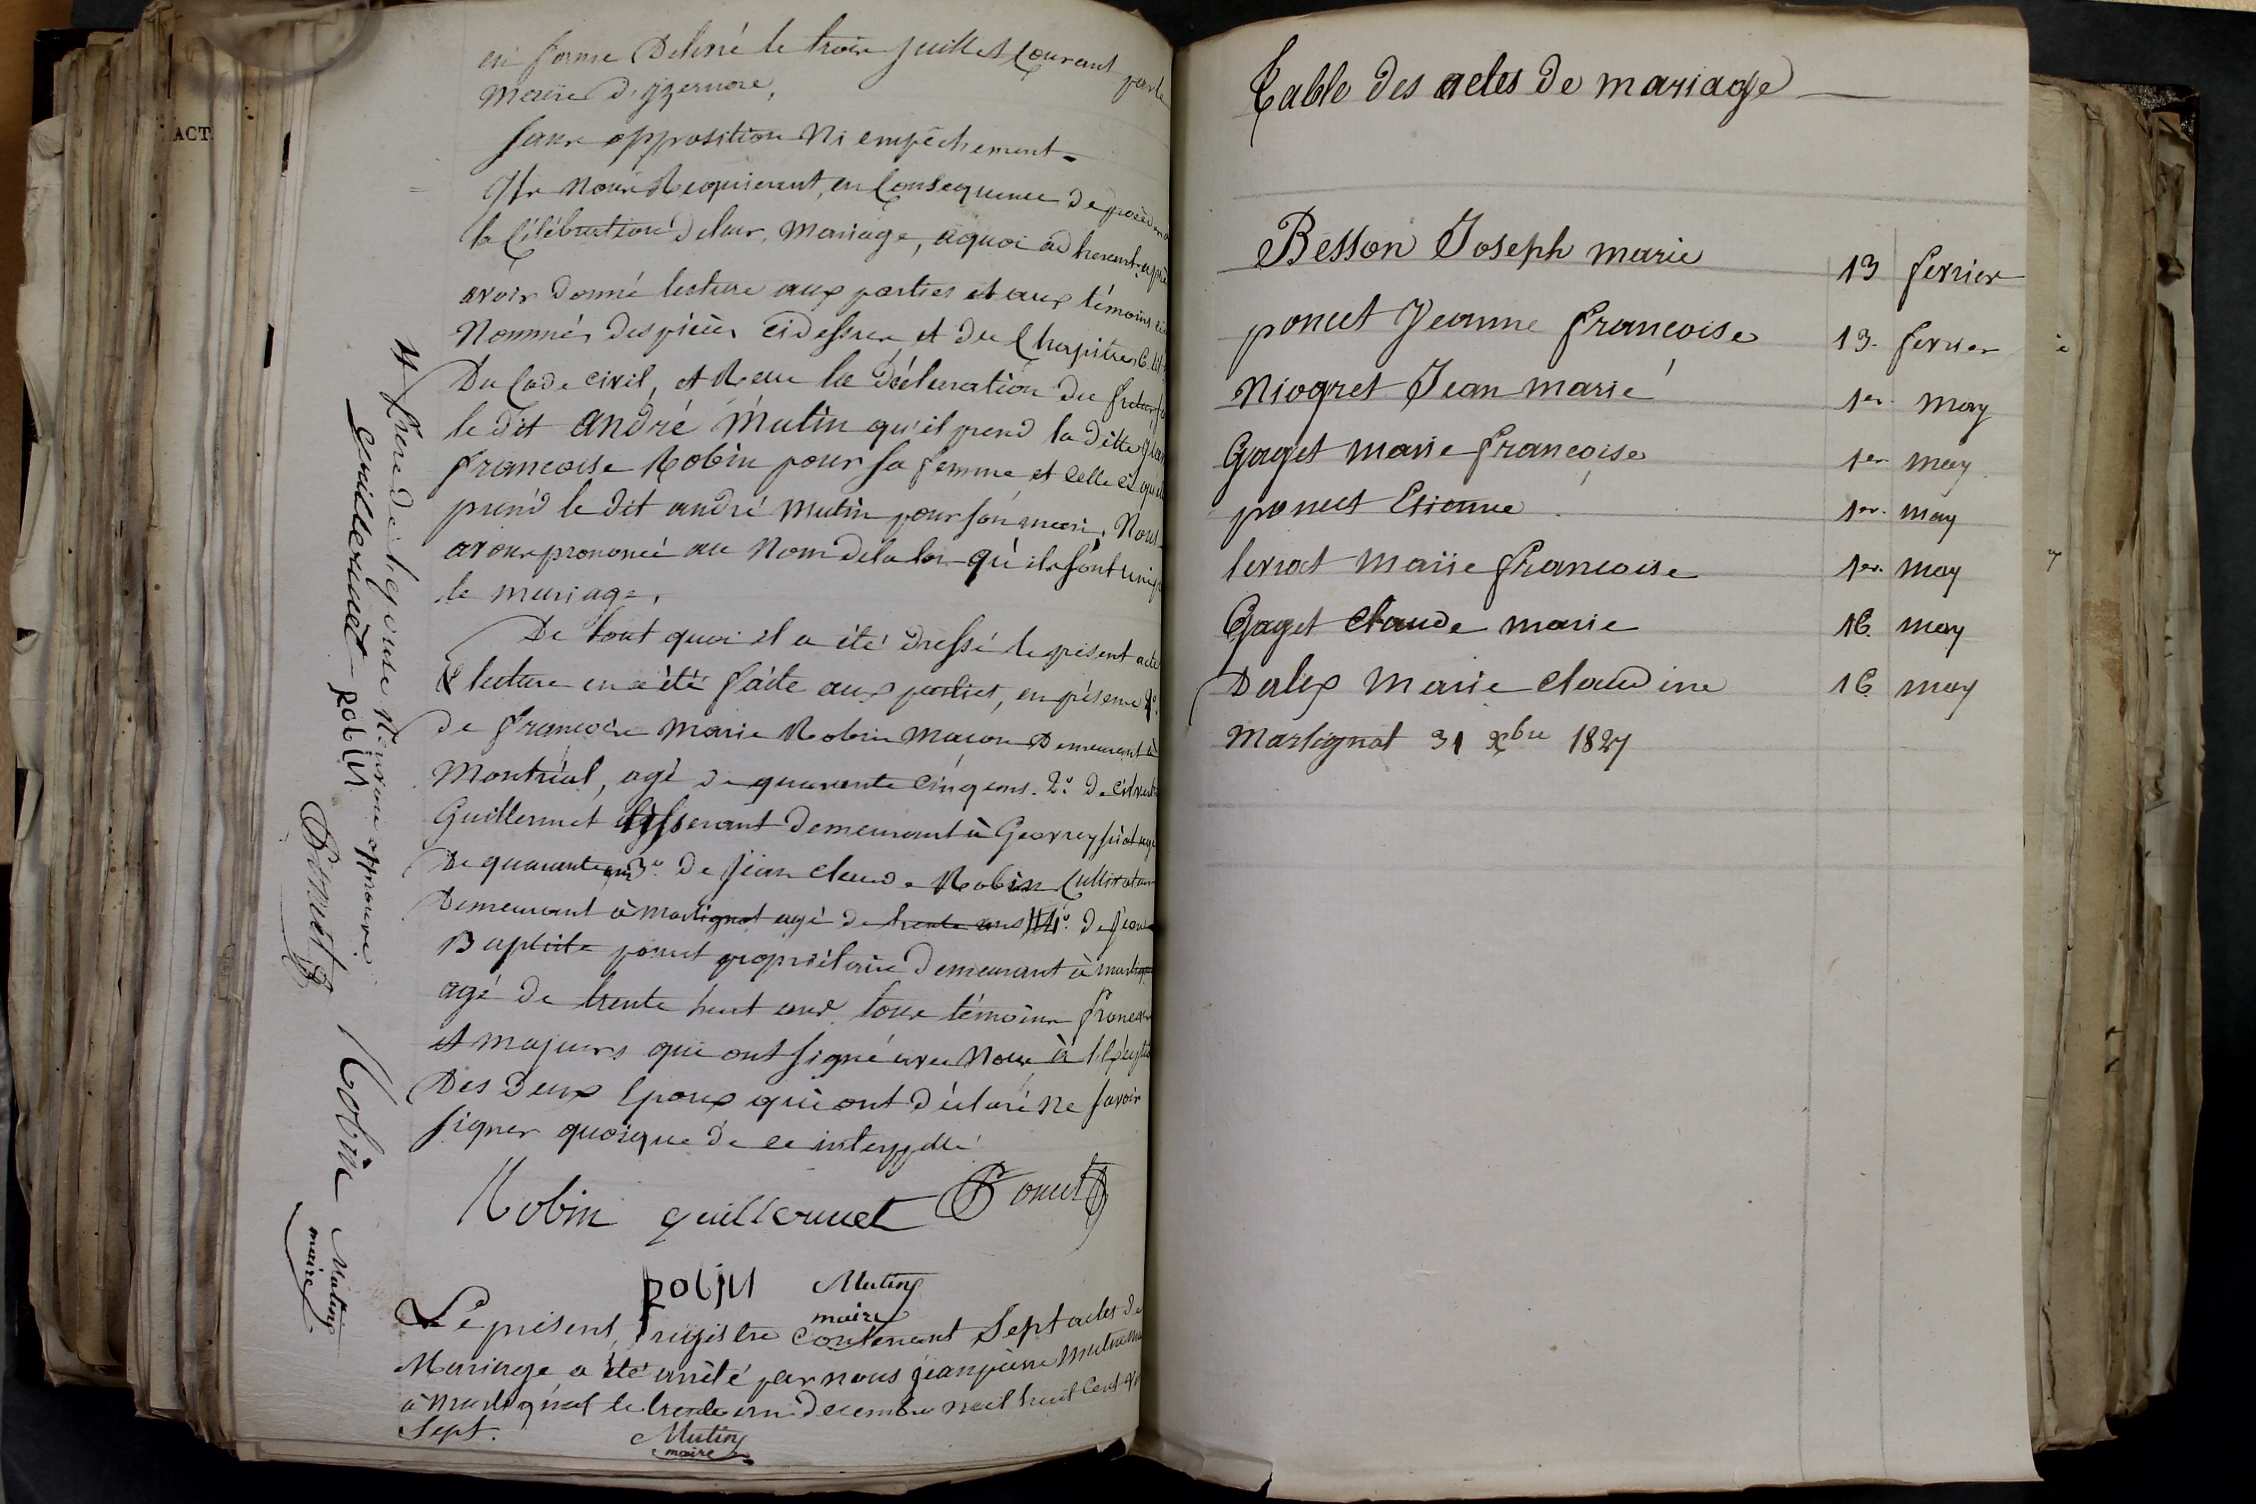 en forme Delivré le trois Juillet Courant par le
Maire d'yzernore,
sans opposition Ni empêchement.
Ils nous Requierent, en Consequence de procéder a
la Célébration de leur Mariage, aquoi adherant, après
avoir donné lecture aux parties et aux témoins
Nommés des pièces cidessus, et du Chapitre 6.
Du Code civil, et Reçu la déclaration du futur
le dit André Mutin qu'il prend la ditte
francoise Robin pour sa femme et celle ci
prend le dit andré Mutin pour son mari. Nous
avons prononcé au Nom de la loi qu'ils sont unis
le mariage.
De tout quoi il a été dressé le present acte
& lecture en a été faite aux parties, en présence
de francois Marie Robin macon Demeurant à
Montréal, agé de quarante cinq ans. 2º. De
Guillermet tisserant demeurant à Geovreyssiat agé
De quarante ans 3º. De Jean Claude Robin Cultivateur
Demeurant à Martignat agé de trente ans # 4º. De Jean
Baptiste poncet propriétaire demeurant à
agé de trente huit ans tous témoins francais
et majeurs qui ont signé avec Nous, à l'exception
Des deux Epoux qui ont déclaré ne savoir
signer quoique de ce interppellé
Robin guillermet Poncet
Robin Mutin
maire
Le présent registre contenant Sept actes de
Mariage a été arrêté par nous jean pierre Mutin
à Martignat le trente un Decembre mil huit Cent
Sept.
Mutin
maire
# frere de l'épouse Renvoi approuvé
guillermet Robin Poncet Robin Mutin
maire
ACT.
Table des actes de mariage
Besson Joseph marie 13 fevrier
poncet Jeanne francoise 13. fevrier
Niogret Jean marie 1er. may
Gaget marie francoise 1er may
poncet Etienne 1er. may
levrat marie francoise 1er. may
Gaget claude marie 16. may
Dalex marie claudine 16 may
Martignat 31 Xbre 1827